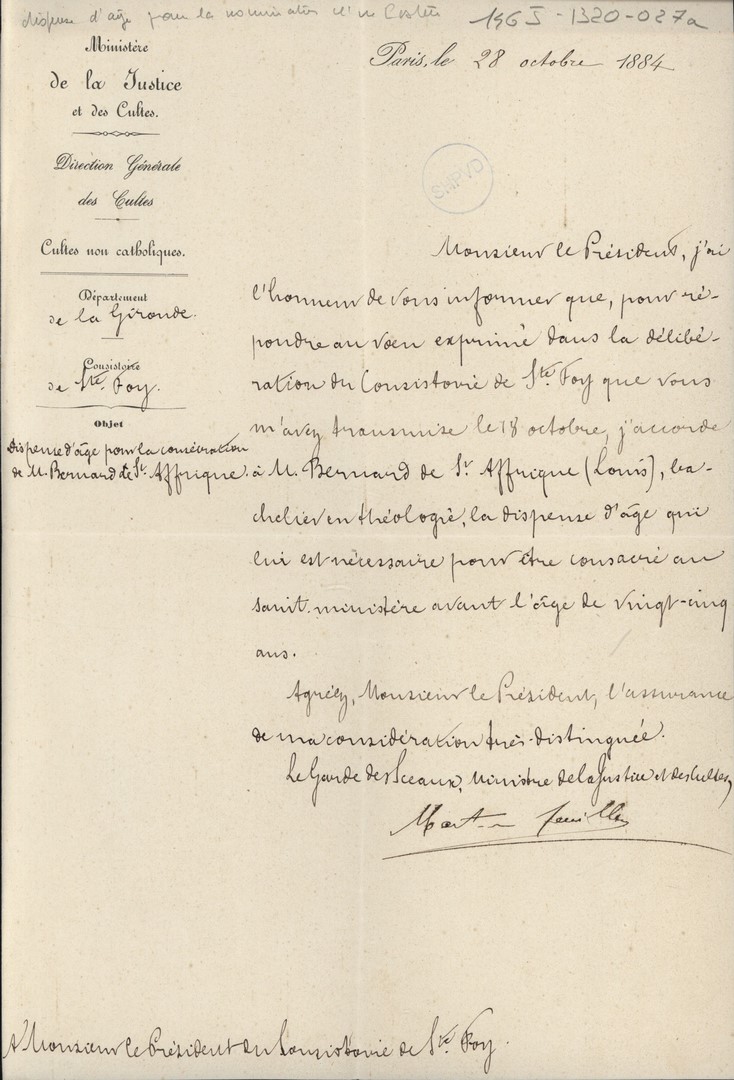 dispense d'âge pour la nomination d'un
196 I - 1320 - 027a
Ministère
de la Justice
et des Cultes.
Direction Générale
des Cultes
Cultes non catholiques.
Département
de la Gironde.
Consistoire
de Ste Foy.
Objet
Dispense d'âge pour la consécration
de M. Bernard de St Affrique.
Paris, le 28 octobre 1884
SHPVD
Monsieur le Président, j'ai
l'honneur de vous informer que, pour ré-
pondre au vœu exprimé dans la délibé-
ration du Consistoire de Ste Foy que vous
m'avez transmise le 18 octobre, j'accorde
à M. Bernard de St Affrique (Louis), ba-
chelier en théologie, la dispense d'âge qui
lui est nécessaire pour être consacré au
saint-ministère avant l'âge de vingt-cinq
ans.
Agréez, Monsieur le Président, l'assurance
de ma considération très-distinguée.
Le Garde des Sceaux, Ministre de la Justice et des Cultes,
Martin Feuillée
A Monsieur le Président du Consistoire de Ste Foy.